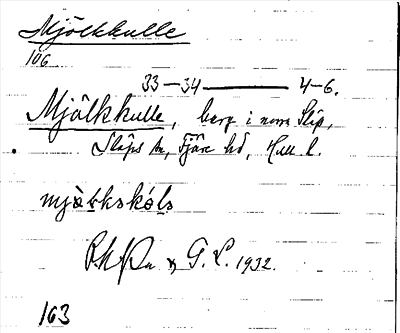 Mjölkkulle
106
33—34 — 4—6.
Mjölkkulle, berg i norra Släp,
Släps sn, Fjäre hd, Hall. l.
G. L. 1932.
163